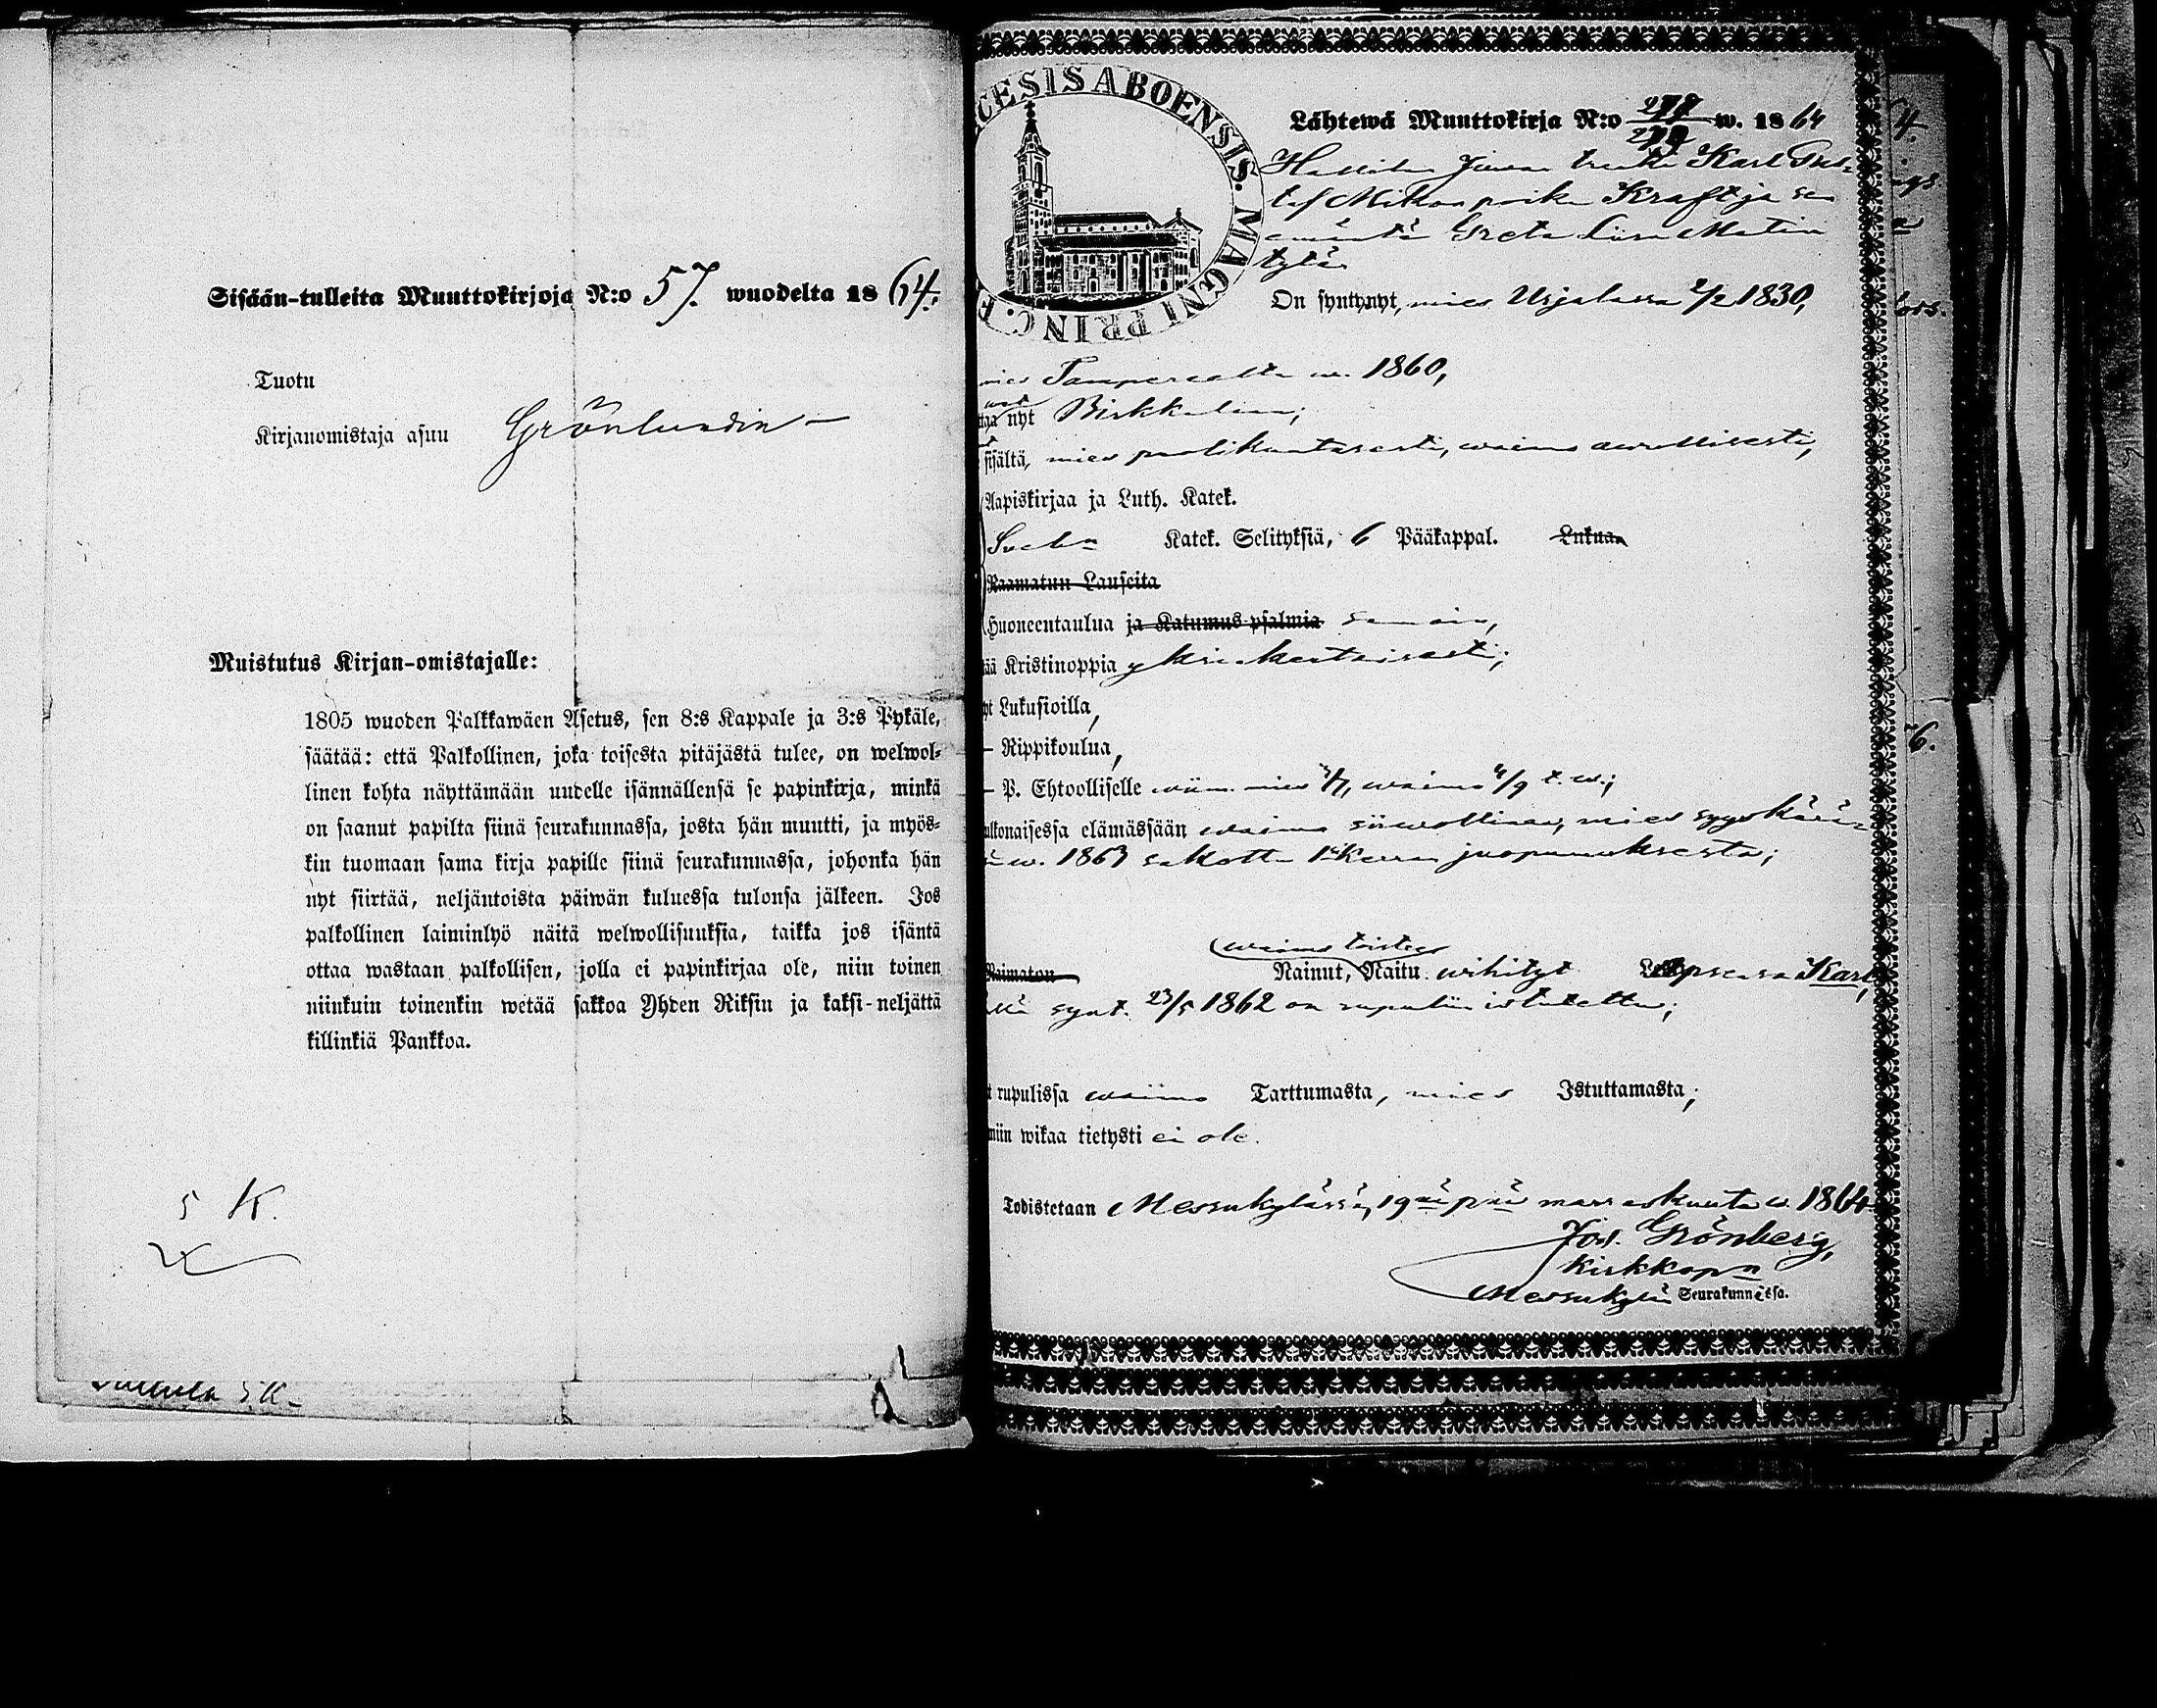 Sisään-tulleita Muuttokirjoja N:o 57. wuodelta 1864.
Tuotu
Kirjanomistaja asuu Grönlundin
Muistutus Kirjan-omistajalle:
1805 wuoden Palkkawäen Asetus, sen 8:s Kappale ja 3:s Pykäle,
säätää: että Palkollinen, joka toisesta pitäjästä tulee, on welwol-
linen kohta näyttämään uudelle isännällensä se papinkirja, minkä
on saanut papilta siinä seurakunnassa, josta hän muutti, ja myös-
kin tuomaan sama kirja papille siinä seurakunnassa, johonka hän
nyt siirtää, neljäntoista päiwän kuluessa tulonsa jälkeen. Jos
palkollinen laiminlyö näitä welwollisuuksia, taikka jos isäntä
ottaa wastaan palkollisen, jolla ei papinkirjaa ole, niin toinen
niinkuin toinenkin wetää sakkoa Yhden Riksin ja kaksi-neljättä
killinkiä Pankkoa.
5 K.
5 K
CESIS ABOENSIS. MAGNI PRINC. F
Lähtewä Muuttokirja N:o w. 1864
Karl Gus-
taf Mikonpoika Kraft ja sen
emäntä Greta Liisa Matin
tytär
On syntynyt, mies Urjalassa 2/2 1830,
mies Tampereelta w. 1860,
nyt Birkkalaan;
sisältä, mies puolikuntaisesti, waimo auttawaisesti,
Aapiskirjaa ja Luth. Katek.
Katek. Selityksiä, 6 Pääkappal. Lukua
Raamatun Lauseita
Huoneentaulua ja Katumus-psalmia samoin,
Kristinoppia yksinkertaisesti;
Lukusioilla,
Rippikoulua,
P. Ehtoolliselle wiim. mies waimo 4/9 t. w.;
ulkonaisessa elämässään waimo siiwollinen, mies syyskärä-
w. 1863 sakotttu 1 kerran juopumuksesta;
waimo toisteen
Naimaton Nainut, Naitu wihityt Lapsensa Karl,
synt. 23/5 1862 on rupuliin istutettu;
rupulissa waimo Tarttumasta, mies Istuttamasta;
wikaa tietysti ei ole.
Todistetaan Messukylässä, 19nä pnä marraskuuta w. 1864
Jos. Grönberg,
Kirkkoh:n
Messukylän Seurakunnassa.